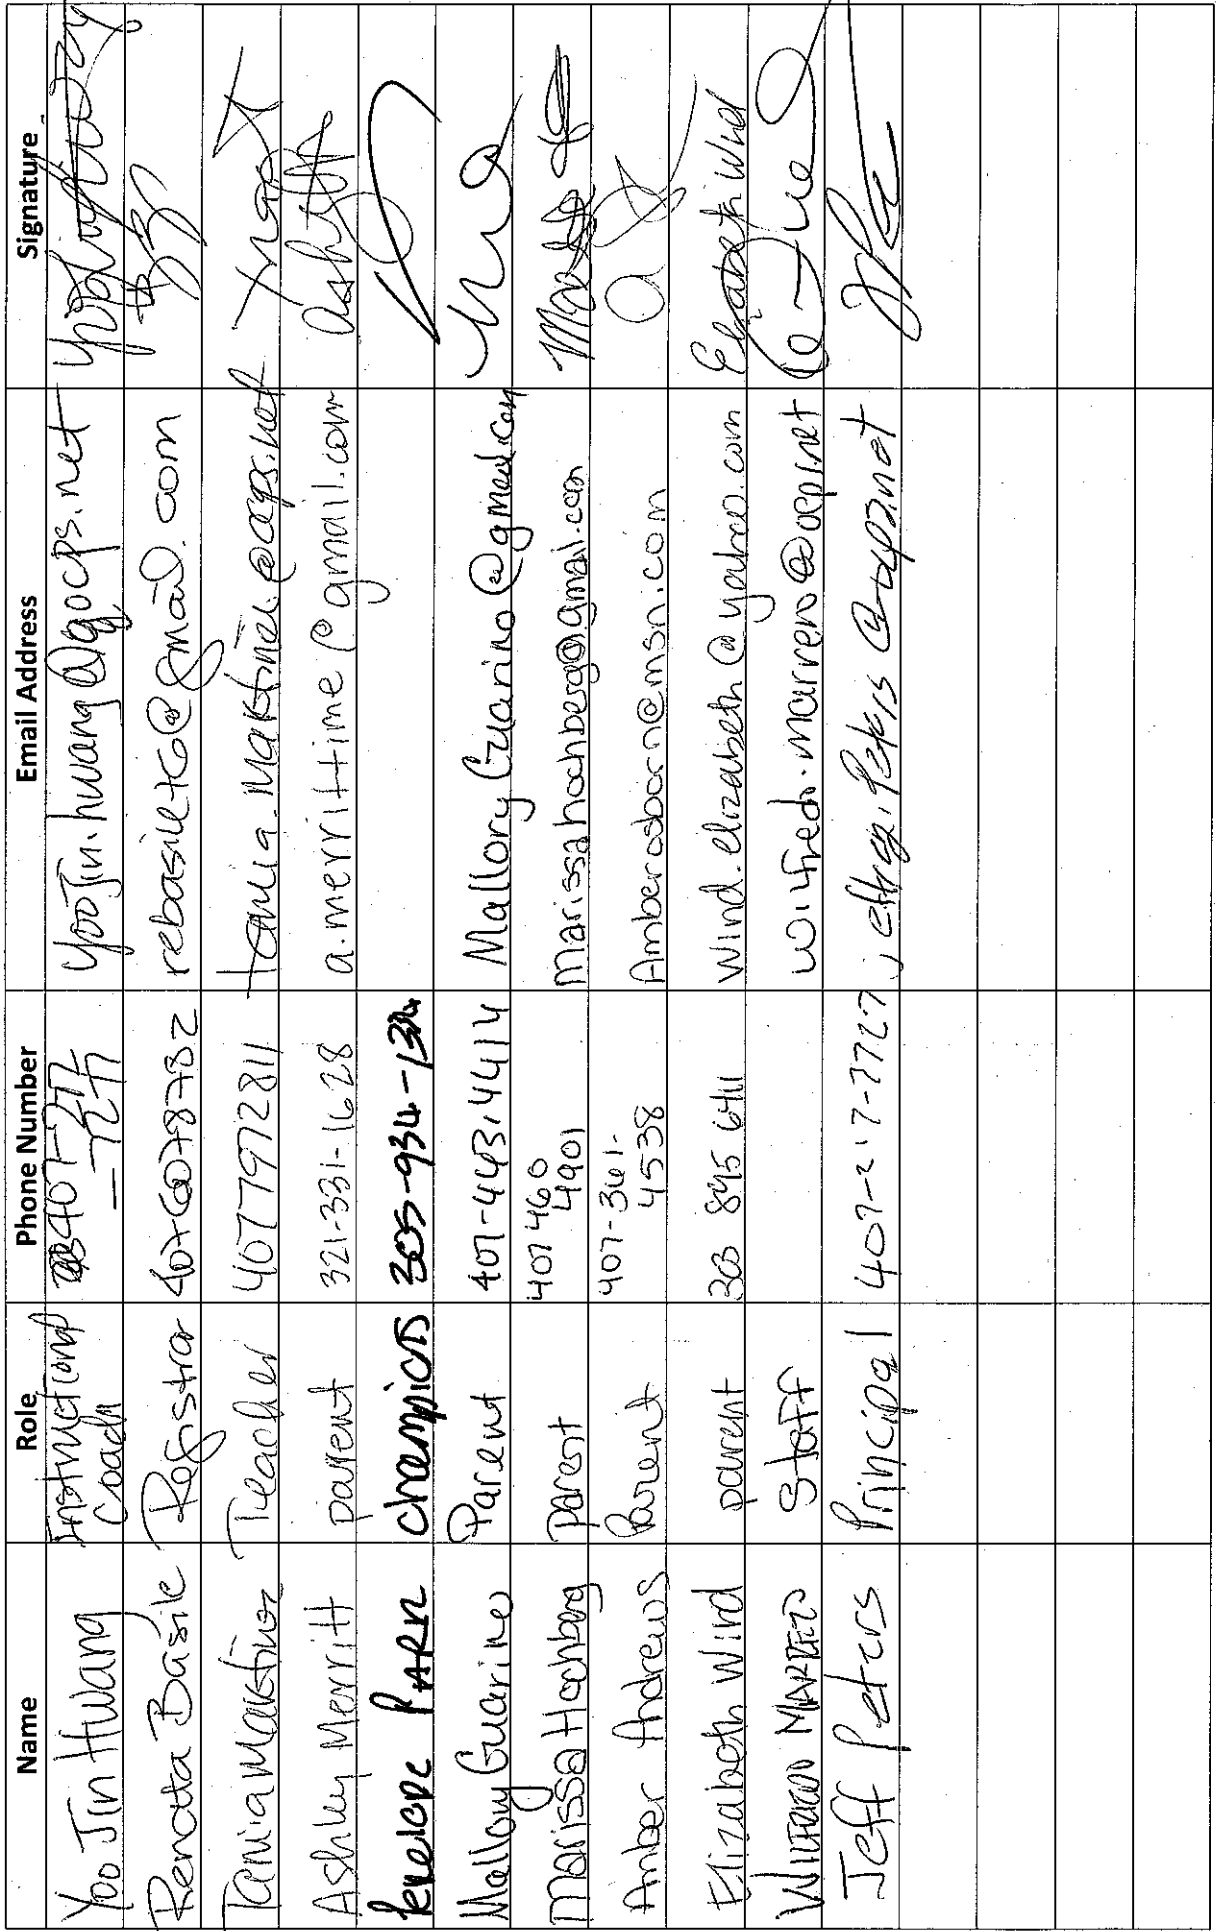 Name Role Phone Number Email Address Signature
Yoo Jin Hwang Instructional Coach yoojin.hwang@ocps.net
Renata Basile Registrar 4076078782
Tania Teacher 4077972811
Ashley Merritt parent 321-331-1628 a.merrittime@gmail.com
champions 305-934-
Mallory Guarino Parent 407-443-4414 MalloryGuarino@gmail.com
Marissa Hochberg parent 407 460 4901 Marissahochberg@gmail.com
Amber Andrews Parent 407-361-4538 Amberosborn@msn.com
Elizabeth Wind parent wind.elizabeth@yahoo.com Elizabeth Wind
Staff wilfredo.marrero@ocps.net
Jeff Peters Principal jeffrey.Peters@ocps.net